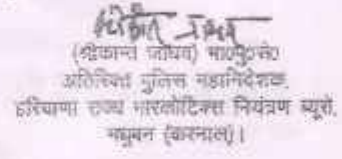 (श्रीकान्त जाधव) भा०पु०से०
अतिरिक्त पुलिस महानिदेशक,
हरियाणा राज्य नारकोटिक्स नियंत्रण ब्यूरो,
मधुबन (करनाल)।